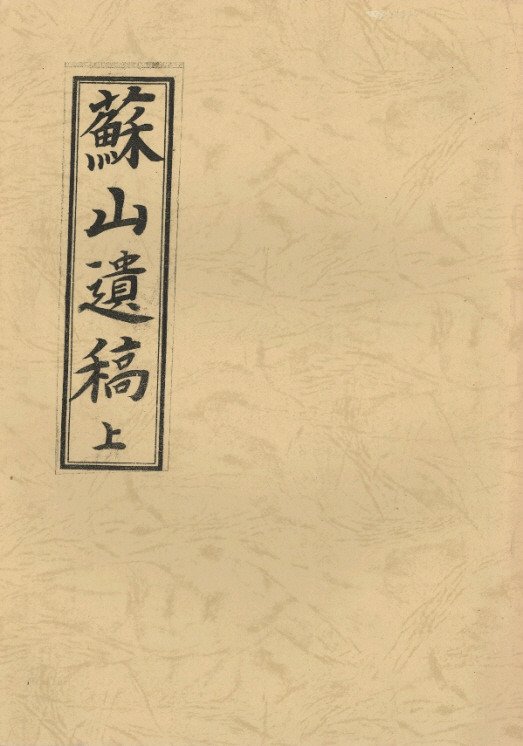 蘇山遺稿上